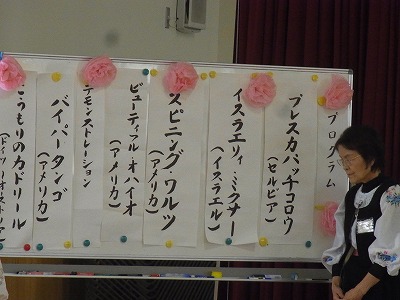 プログラム
プレスカバッチコロウ
(セルビア)
イスラエリィ・ミクサー
(イスラエル)
スピニング・ワルツ
(アメリカ)
ビューティフル・オハイオ
(アメリカ)
デモンストレーション
バイパータンゴ
(アメリカ)
こうもりのカドリール